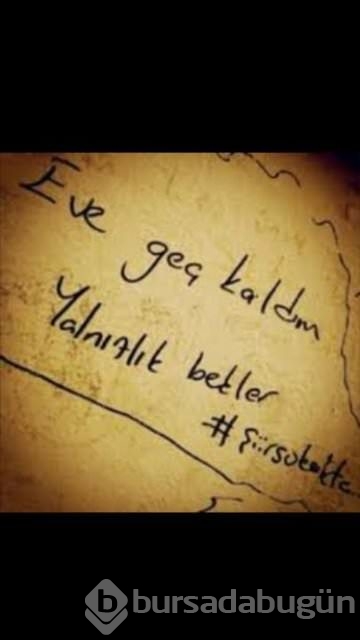 Eve geç kaldım
Yalnızlık bekler
#şiirsokakta
bursadabugün